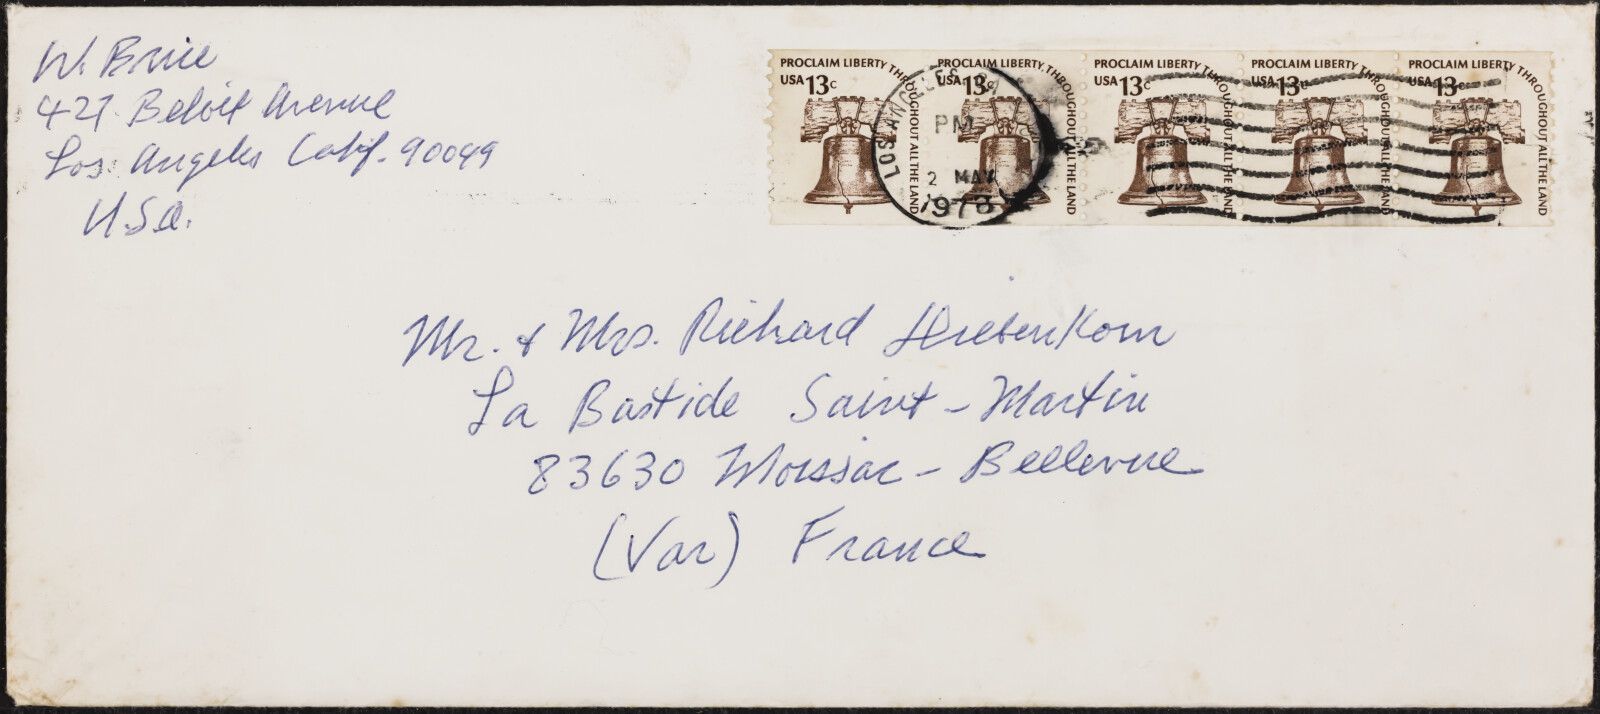 W. Brice
427 Beloit Avenue
Los Angeles Calif. 90049
U.S.A.
PROCLAIM LIBERTY THROUGHOUT ALL THE LAND
USA 13c
PROCLAIM LIBERTY THROUGHOUT ALL THE LAND
USA 13c
PROCLAIM LIBERTY THROUGHOUT ALL THE LAND
USA 13c
PROCLAIM LIBERTY THROUGHOUT ALL THE LAND
USA 13c
PROCLAIM LIBERTY THROUGHOUT ALL THE LAND
USA 13c
LOS ANGELES, CA
PM
2 MAY
1978
Mr. & Mrs. Richard Diebenkorn
La Bastide Saint-Martin
83630 Moissac-Bellevue
(Var) France